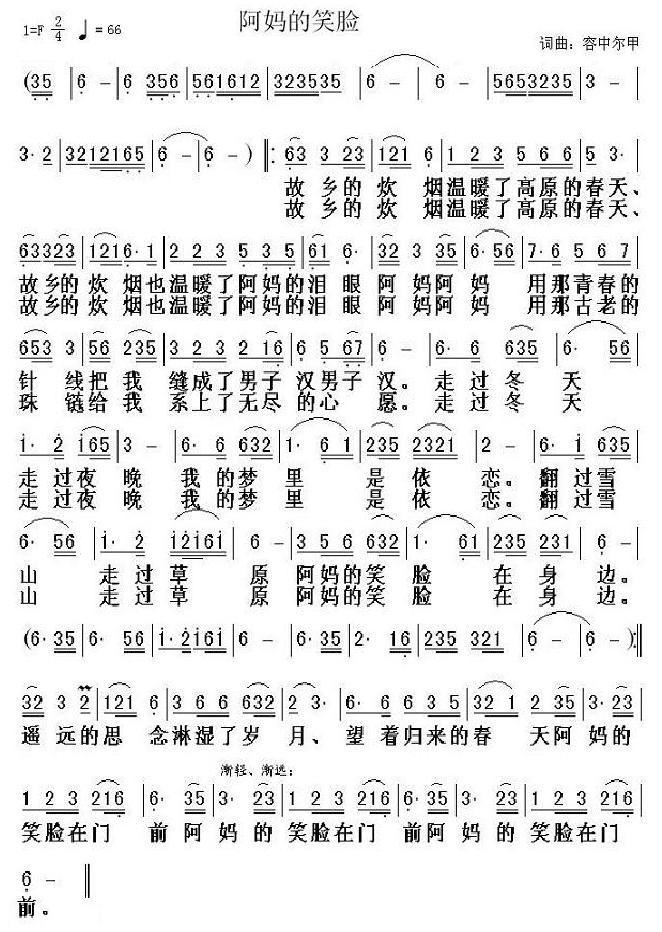 阿妈的笑脸
1=F 2/4 ♩=66
词曲：容中尔甲
(35 6 – 6 356 561612 323535 6 – 6 – 5653235 3 –
3· 2 3212165 6 – 6 –) 63 3 23 121 6 1 2 3 5 6 6 5 3·
故乡的炊烟温暖了高原的春天、
故乡的炊烟温暖了高原的春天、
63323 1216·1 2 2 3 5 3 5 61 6· 32 3 35 6·56 7·6 5 6 7
故乡的炊烟也温暖了阿妈的泪眼阿妈阿妈用那青春的
故乡的炊烟也温暖了阿妈的泪眼阿妈阿妈用那古老的
653 3 56 235 3 2 3 2 16 6 5 67 6 – 6· 6 635 6· 56
针线把我缝成了男子汉男子汉。走过冬天
珠链给我系上了无尽的心愿。走过冬天
1· 2 165 3 – 6· 6 632 1· 6 1 235 2321 2 – 6· 1 635
走过夜晚我的梦里是依恋。翻过雪
走过夜晚我的梦里是依恋。翻过雪
6· 56 1· 2 12161 6 – 3 5 6 632 1· 61 235 231 6 –
山走过草原阿妈的笑脸在身边。
山走过草原阿妈的笑脸在身边。
(6·35 6· 56 1·2161 6 – 6·35 2· 16 235 321 6 – 6 –)
32 3 2 121 6 3 6 6 632 2 3· 6· 6 6 3 5 32 1 2 35 3·23
遥远的思念淋湿了岁月、望着归来的春天阿妈的
渐轻、渐远：
1 2 3 216 6· 35 3· 23 1 2 3 216 6· 35 3· 23 1 2 3 216
笑脸在门前阿妈的笑脸在门前阿妈的笑脸在门
6 –
前。